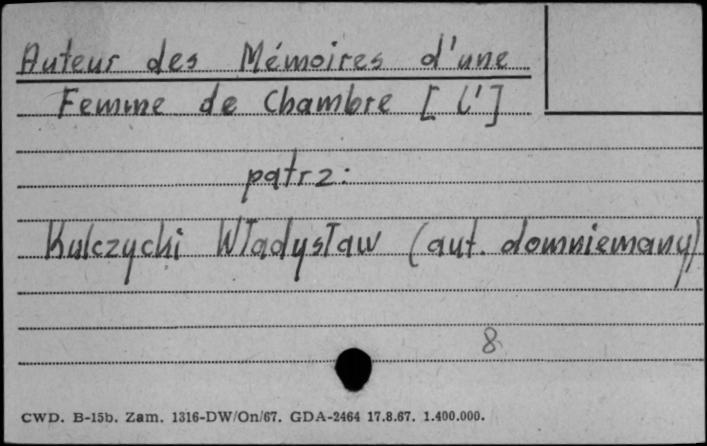 Auteur des Mémoires d'une
Femme de Chambre [l']
patrz:
Kulczycki Władysław (aut. domniemany)
8
CWD. B-15b. Zam. 1316-DW/On/67. GDA-2464 17.8.67. 1.400.000.